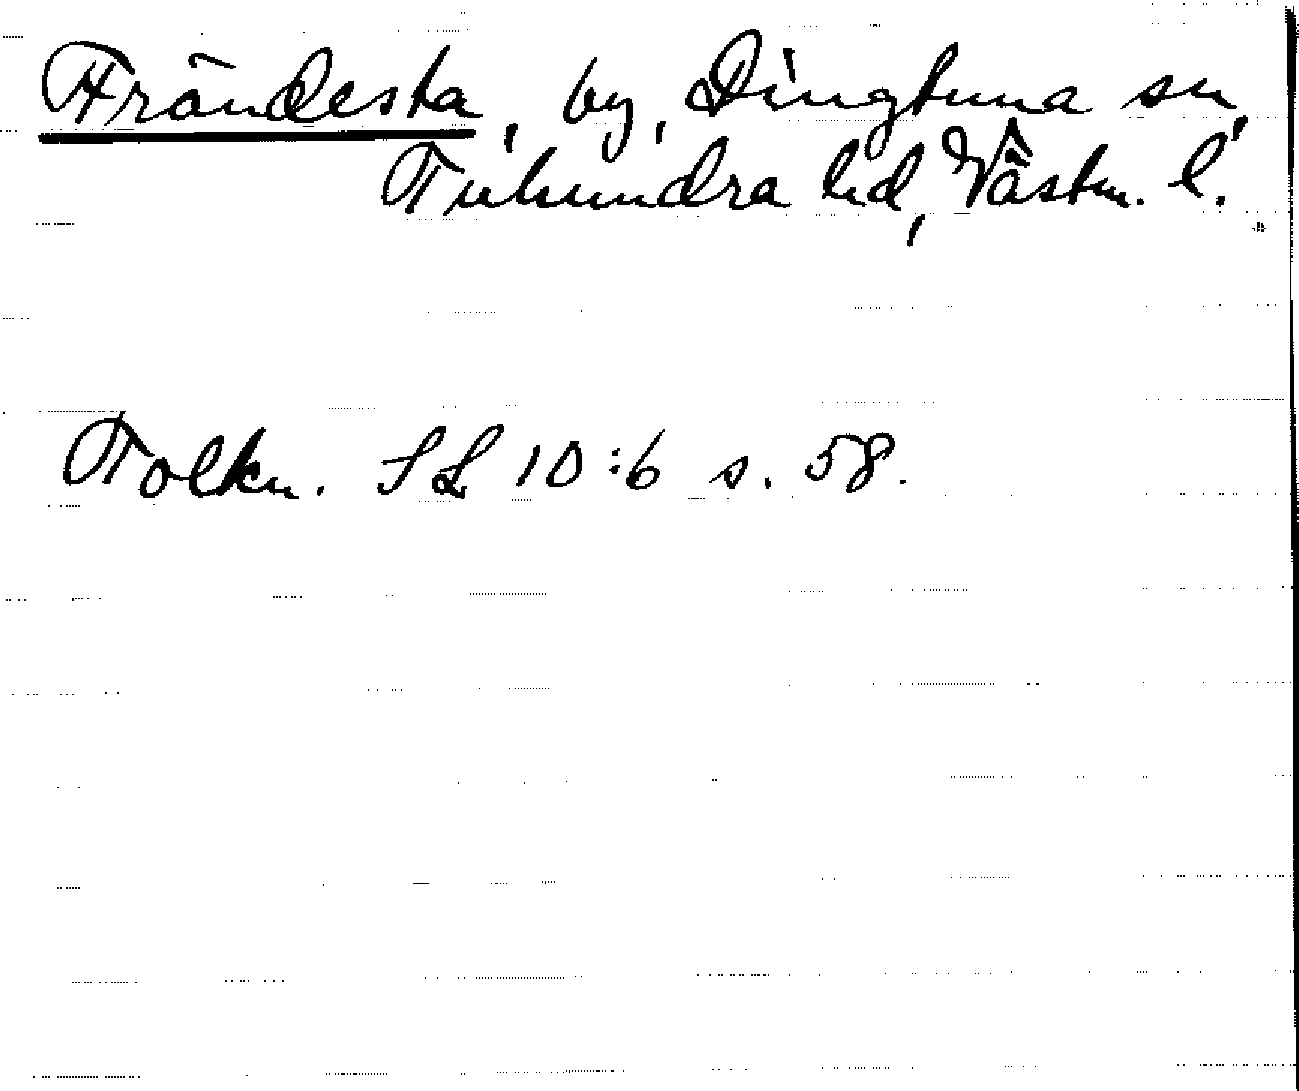 Frändesta, by, Dingtuna sn,
Tuhundra hd, Västm. l.
Tolkn. SL 10:6 s. 58.